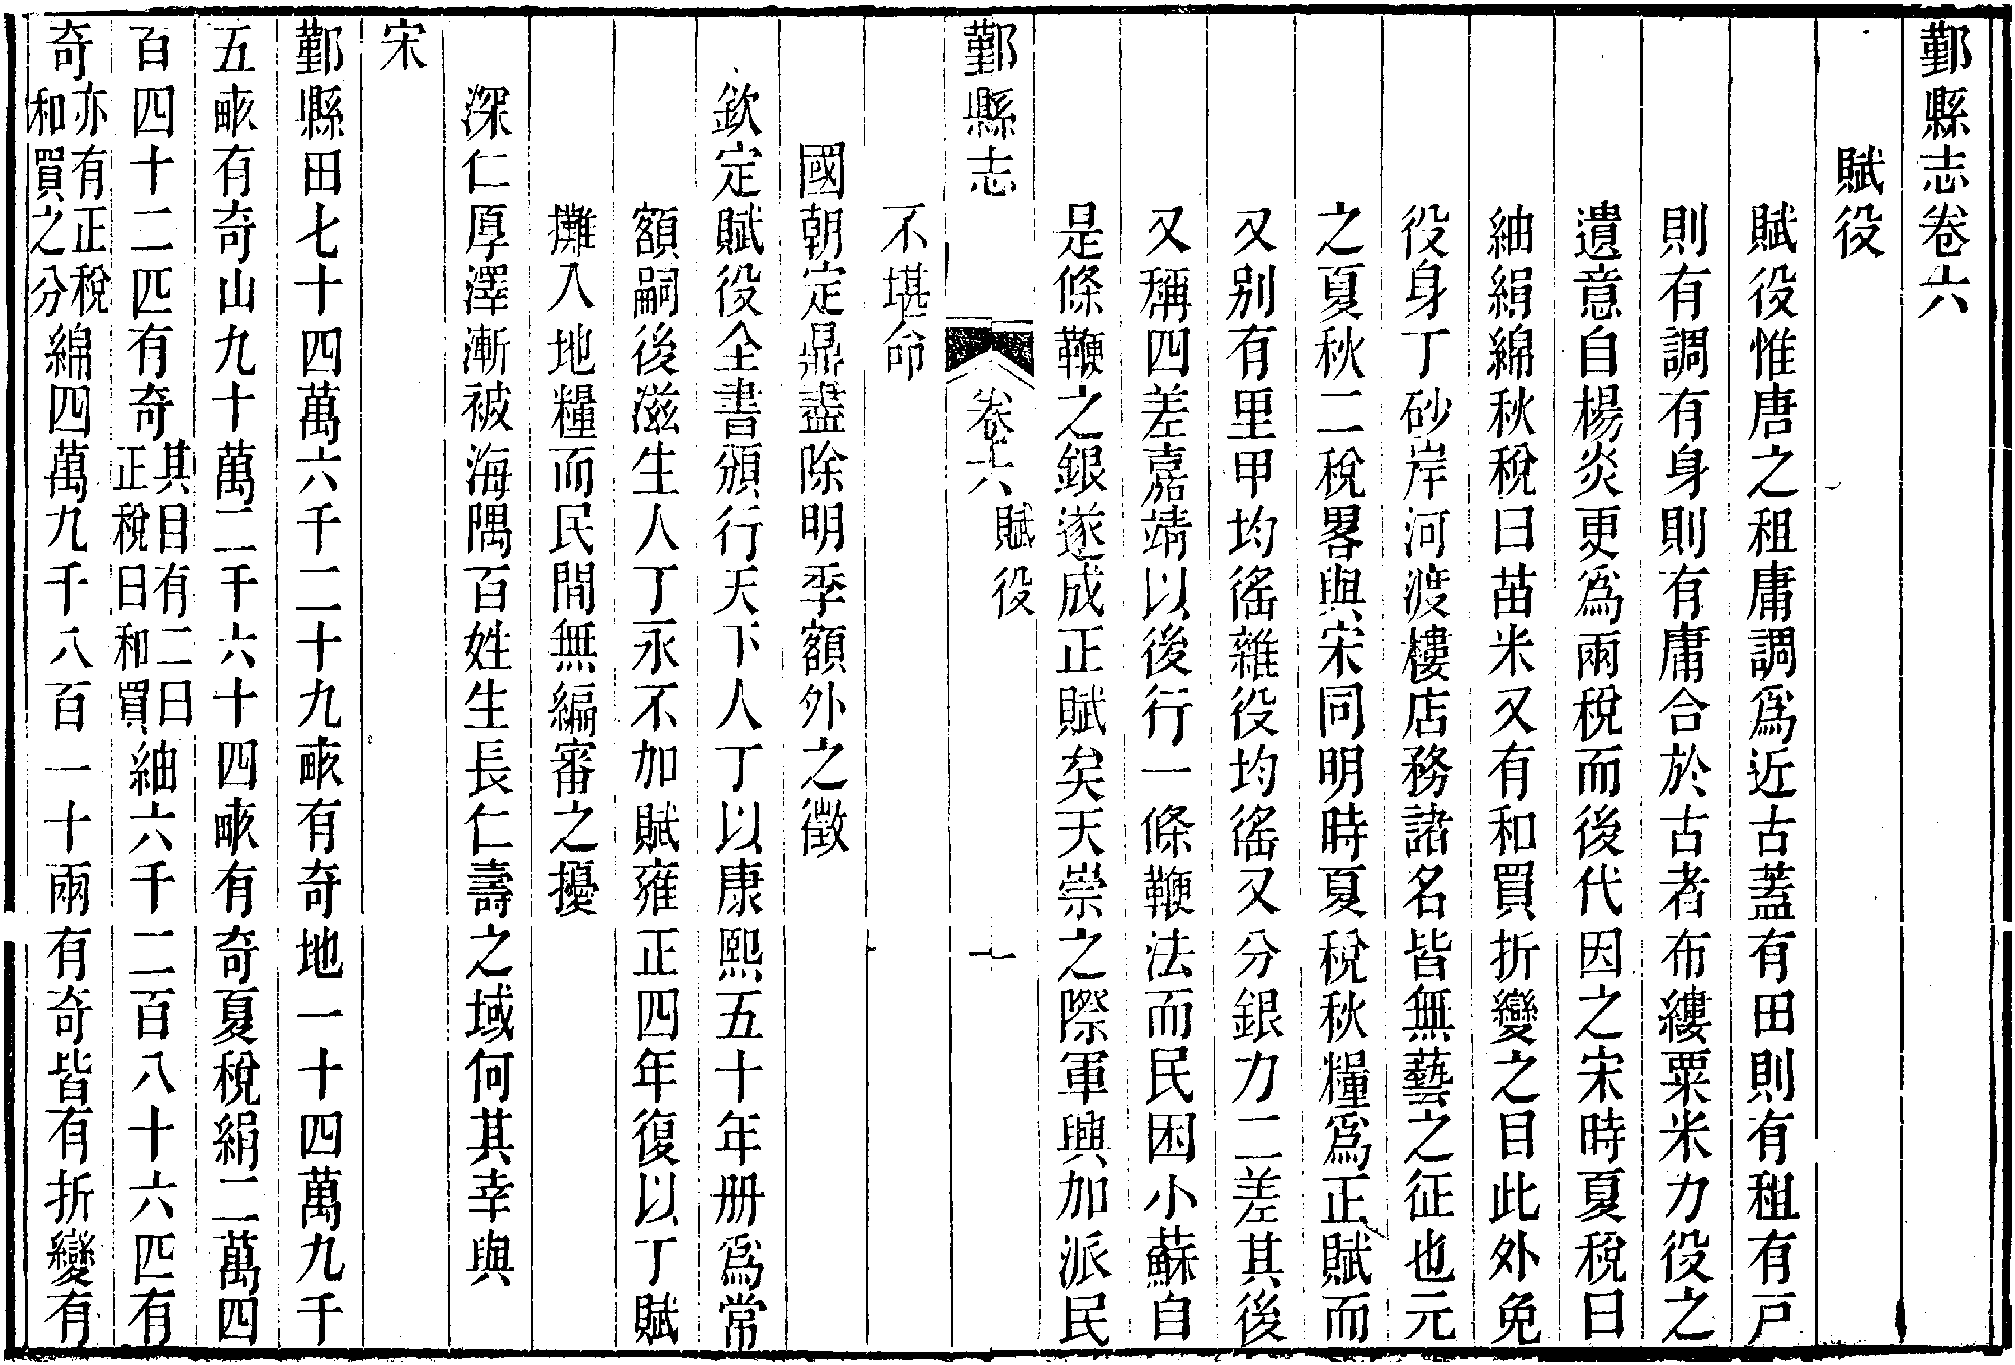 鄞縣志卷六
賦役
賦役惟唐之租庸調爲近古蓋有田則有租有戸
則有調有身則有庸合於古者布縷粟米力役之
遺意自楊炎更爲兩稅而後代因之宋時夏稅曰
紬絹綿秋稅曰苗米又有和買折變之目此外免
役身丁砂岸河渡樓店務諸名皆無藝之征也元
之夏秋二稅畧與宋同明時夏稅秋糧爲正賦而
又别有里甲均徭雜役均徭又分銀力二差其後
又稱四差嘉靖以後行一條鞭法而民困小蘇自
是條鞭之銀遂成正賦矣天崇之際軍興加派民
鄞縣志 卷六 賦役 一
不堪命
國朝定鼎盡除明季額外之徵
欽定賦役全書頒行天下人丁以康熙五十年册爲常
額嗣後滋生人丁永不加賦雍正四年復以丁賦
攤入地糧而民間無編審之擾
深仁厚澤漸被海隅百姓生長仁壽之域何其幸與
宋
鄞縣田七十四萬六千二十九畝有奇地一十四萬九千
五畝有奇山九十萬二千六十四畝有奇夏稅絹二萬四
百四十二匹有奇其目有二曰正稅曰和買紬六千二百八十六匹有
奇亦有正稅和買之分綿四萬九千八百一十兩有奇皆有折變有